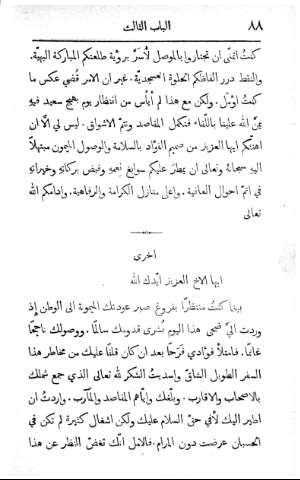 ٨٨ الباب الثالث
كنتُ اتمنّى ان تجتازوا بالموصل لأسرّ برؤية طلعتكم المباركة البهيّة.
والتقط درر الفاظكم الحلوة العسجديّة. غير ان الامر قُضي عكس ما
كنت اؤمّل. ولكن مع هذا لم أيأس من انتظار يوم بهيج سعيد فيه
يمنّ الله علينا باللقاء فتكمل المقاصد وتتمّ الاشواق. ليس لي الآن ان
اهنئكم ايها العزيز من صميم الفؤاد بالسلامة والوصول الميمون مبتهلًا
اليه سبحانهُ وتعالى ان يمطر عليكم سوابغ نعمهِ وفيض بركاتهِ وخيراتهِ
في اتمّ احوال العافية. واعلى منازل الكرامة والرفاهية. وادامكم الله
تعالى
اخرى
ايها الاخ العزيز ايّدك الله
بينا كنتُ منتظرًا بفروغ صبر عودتك الميمونة الى الوطن إذ
وردت اليّ ضحى هذا اليوم بُشرى قدومك سالمًا. ووصولك ناجحًا
غانمًا. فامتلأ فؤادي فَرَحًا بعد ان كان قلقًا عليك من مخاطر هذا
السفر الطويل الشاقّ واسديتُ الشكر لله تعالى الذي جمع شملك
بالاصحاب والاقارب. وبلّغك وايّاهم المقاصد والمآرب. واردتُ ان
اطير اليك لأفي حقّ السلام عليك ولكن اشغال كثيرة لم تكن في
الحسبان عرضت دون المرام. فالامل أنّك تغضّ النظر عن هذا